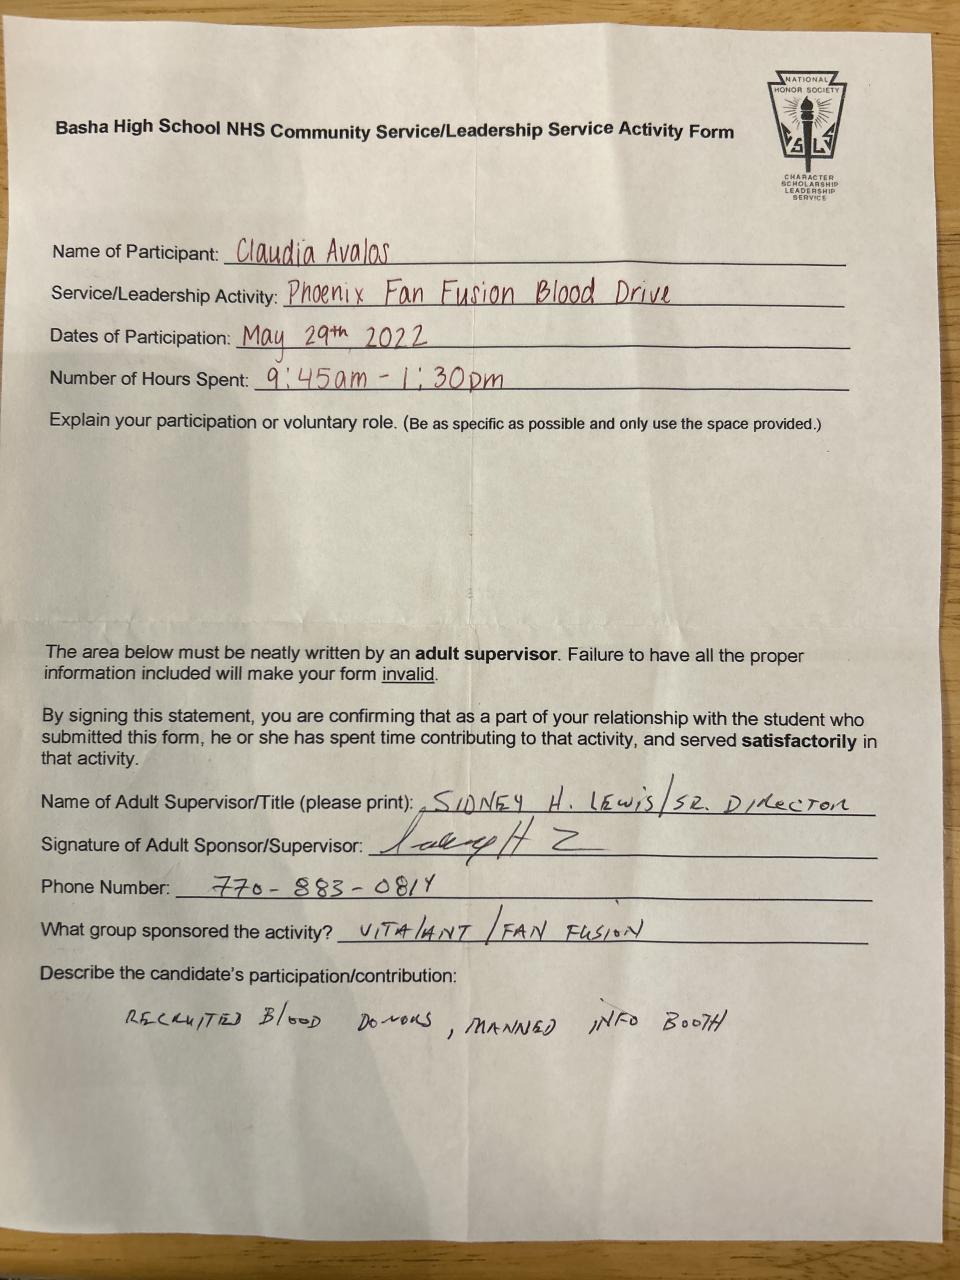 NATIONAL
HONOR SOCIETY
CHARACTER
SCHOLARSHIP
LEADERSHIP
SERVICE
Basha High School NHS Community Service/Leadership Service Activity Form
Name of Participant: Claudia Avalos
Service/Leadership Activity: Phoenix Fan Fusion Blood Drive
Dates of Participation: May 29th 2022
Number of Hours Spent: 9:45am - 1:30pm
Explain your participation or voluntary role. (Be as specific as possible and only use the space provided.)
The area below must be neatly written by an adult supervisor. Failure to have all the proper
information included will make your form invalid.
By signing this statement, you are confirming that as a part of your relationship with the student who
submitted this form, he or she has spent time contributing to that activity, and served satisfactorily in
that activity.
Name of Adult Supervisor/Title (please print): SIDNEY H. LEWIS/SR. DIRECTOR
Signature of Adult Sponsor/Supervisor:
Phone Number: 770-883-0814
What group sponsored the activity? VITALANT / FAN FUSION
Describe the candidate's participation/contribution:
RECRUITED BLOOD DONORS, MANNED INFO BOOTH